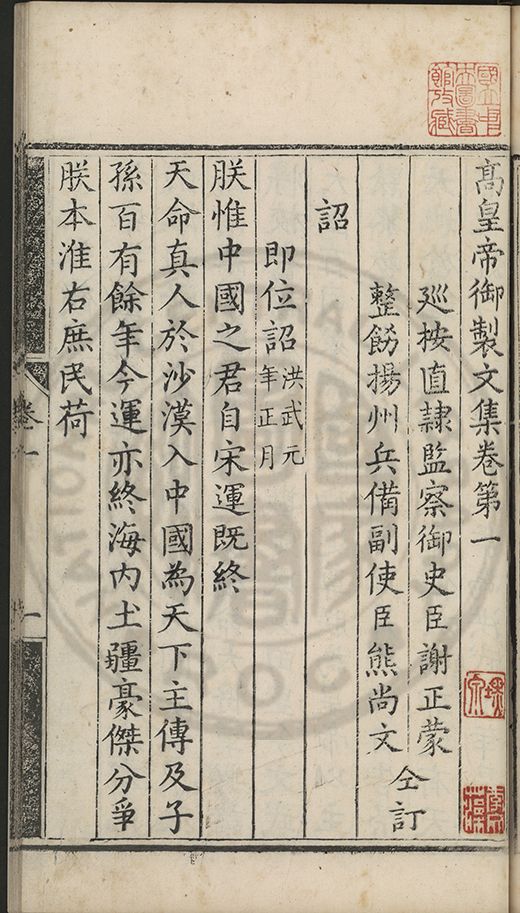 高皇帝御製文集卷第一
廵按直隷監察御史臣謝正蒙
整飭揚州兵備副使臣熊尚文
仝訂
詔
即位詔洪武元年正月
朕惟中國之君自宋運既終
天命真人於沙漠入中國為天下主傳及子
孫百有餘年今運亦終海内土疆豪傑分爭
朕本淮右庶民荷
卷一
一
國立中央圖書館攷藏